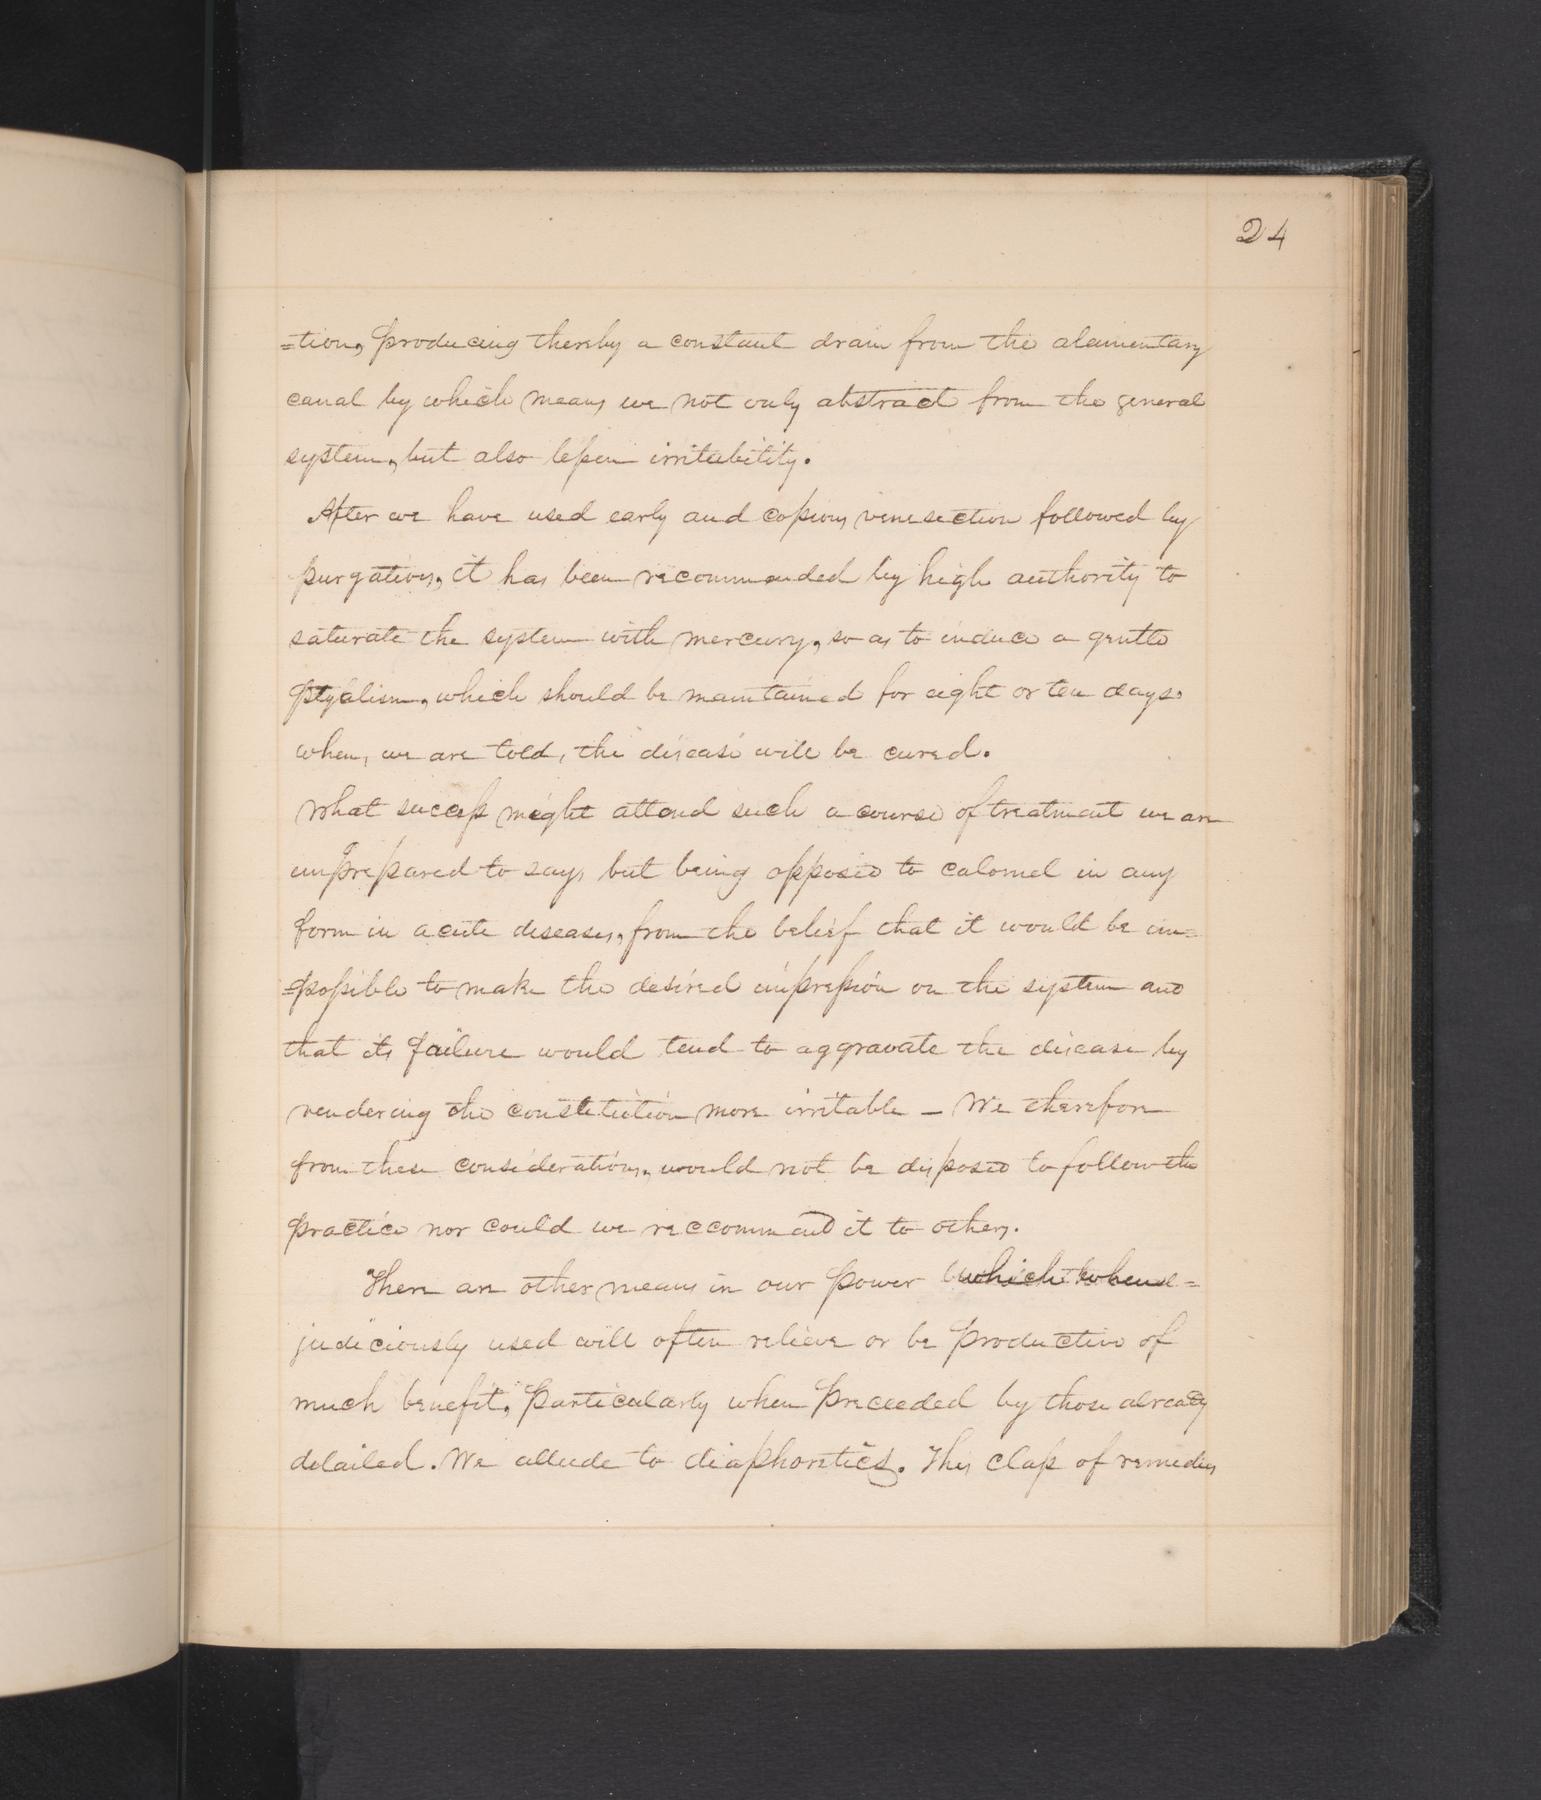 24
=tion, producing thereby a constant drain from the alaimentary
canal by which means we not only abstract from the general
system, but also lessen irritability.
After we have used early and copious venesection followed by
purgatives, it has been recommended by high authority to
saturate the system with mercury, so as to induce a gentle
ptyalism, which should be maintained for eight or ten days.
when, we are told, the disease will be cured.
What success might attend such a course of treatment we are
unprepared to say, but being opposed to calomel in any
form in acute diseases, from the belief that it would be im=
=possible to make the desired impression on the system and
that its failure would tend to aggravate the disease by
rendering the constitution more irritable – We therefore
from these considerations, would not be disposed to follow the
practice nor could we reccommend it to others.
There are other means in our power which when
judiciously used will often relieve or be productive of
much benefit, particularly when preceeded by those already
detailed. We allude to diaphoretics. This class of remedies